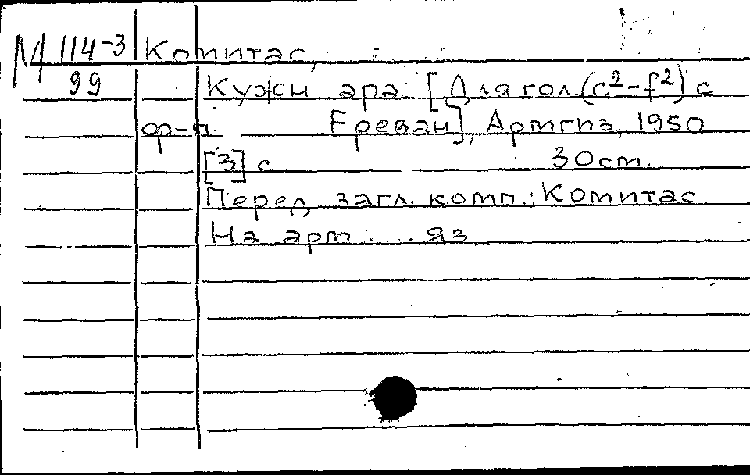 М 114-3 Комитас,
99 Кужн ара. [Для гол (c²-f²) с
ф-п. Ереван], Армгиз, 1950
[3] с 30 cm.
Перед загл. комп.: Комитас
На арм. яз